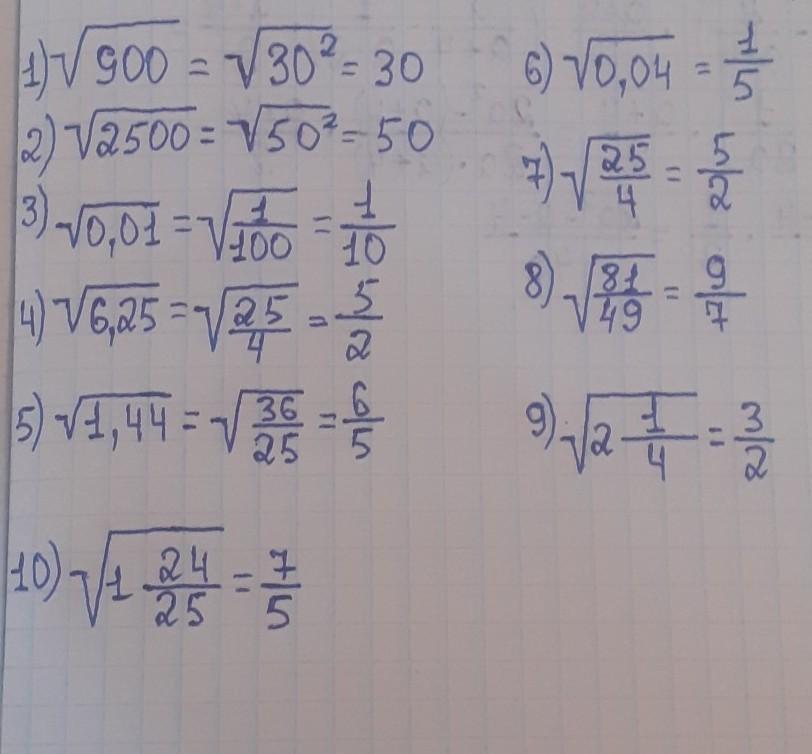 1) √900 = √30² = 30
2) √2500 = √50² = 50
3) √0,01 = √(1/100) = 1/10
4) √6,25 = √(25/4) = 5/2
5) √1,44 = √(36/25) = 6/5
6) √0,04 = 1/5
7) √(25/4) = 5/2
8) √(81/49) = 9/7
9) √(2 1/4) = 3/2
10) √(1 24/25) = 7/5